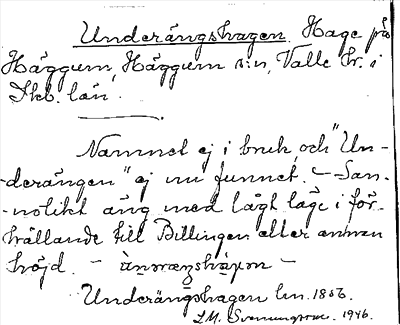 Underängshagen. Hage på
Häggum, Häggum s:n, Valle hr. i
Skb. län.
Namnet ej i bruk, och "Un-
-derängen" ej nu funnet. - San-
-nolikt äng med lågt läge i för-
hållande till Billingen eller annan
höjd. -
Underängshagen lm. 1856.
1946.